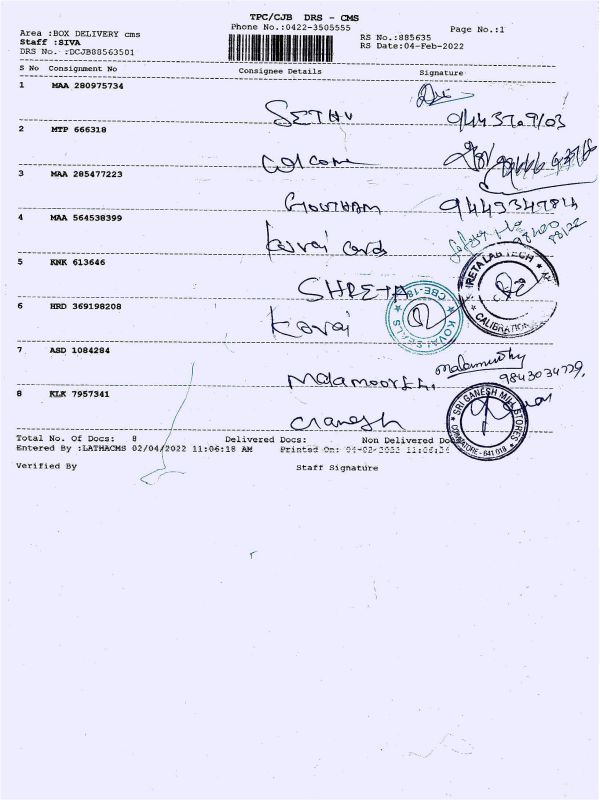 TPC/CJB DRS - CMS
Phone No.:0422-3505555
Page No.:1
Area :BOX DELIVERY cms
Staff :SIVA
DRS No. :DCJB88563501
RS No.:885635
RS Date:04-Feb-2022
S No Consignment No Consignee Details Signature
1 MAA 280975734
SETHU
2 MTP 666318
Welcome
3 MAA 285477223
GOUTHAM 9443347814
4 MAA 564538399
Kovai
5 KNK 613646
SHRETA
LAB TECH
CALIBRATION
6 HRD 369198208
Kovai
KOVAI SEALS CBE-18
7 ASD 1084284
9843034779
8 KLK 7957341
Ganesh
SRI GANESH MILL STORES
COIMBATORE - 641 018
Total No. Of Docs: 8 Delivered Docs: Non Delivered
Entered By :LATHACMS 02/04/2022 11:06:18 AM Printed On: 04-02-2022 11:06:24
Verified By Staff Signature